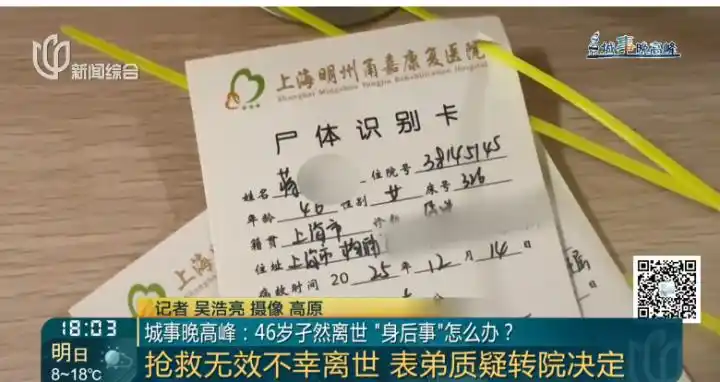 新闻综合
城事晚高峰
上海明州甬嘉康复医院
Shanghai Mingzhou Yongjia Rehabilitation Hospital
尸体识别卡
姓名 蒋 住院号 38145145
年龄 46 性别 女 床号 326
籍贯 上海市 诊断
住址 上海市
病故时间 2025年12月14日
记者 吴浩亮 摄像 高原
18:03
城事晚高峰：46岁孑然离世 "身后事"怎么办？
明日
8~18℃
抢救无效不幸离世 表弟质疑转院决定